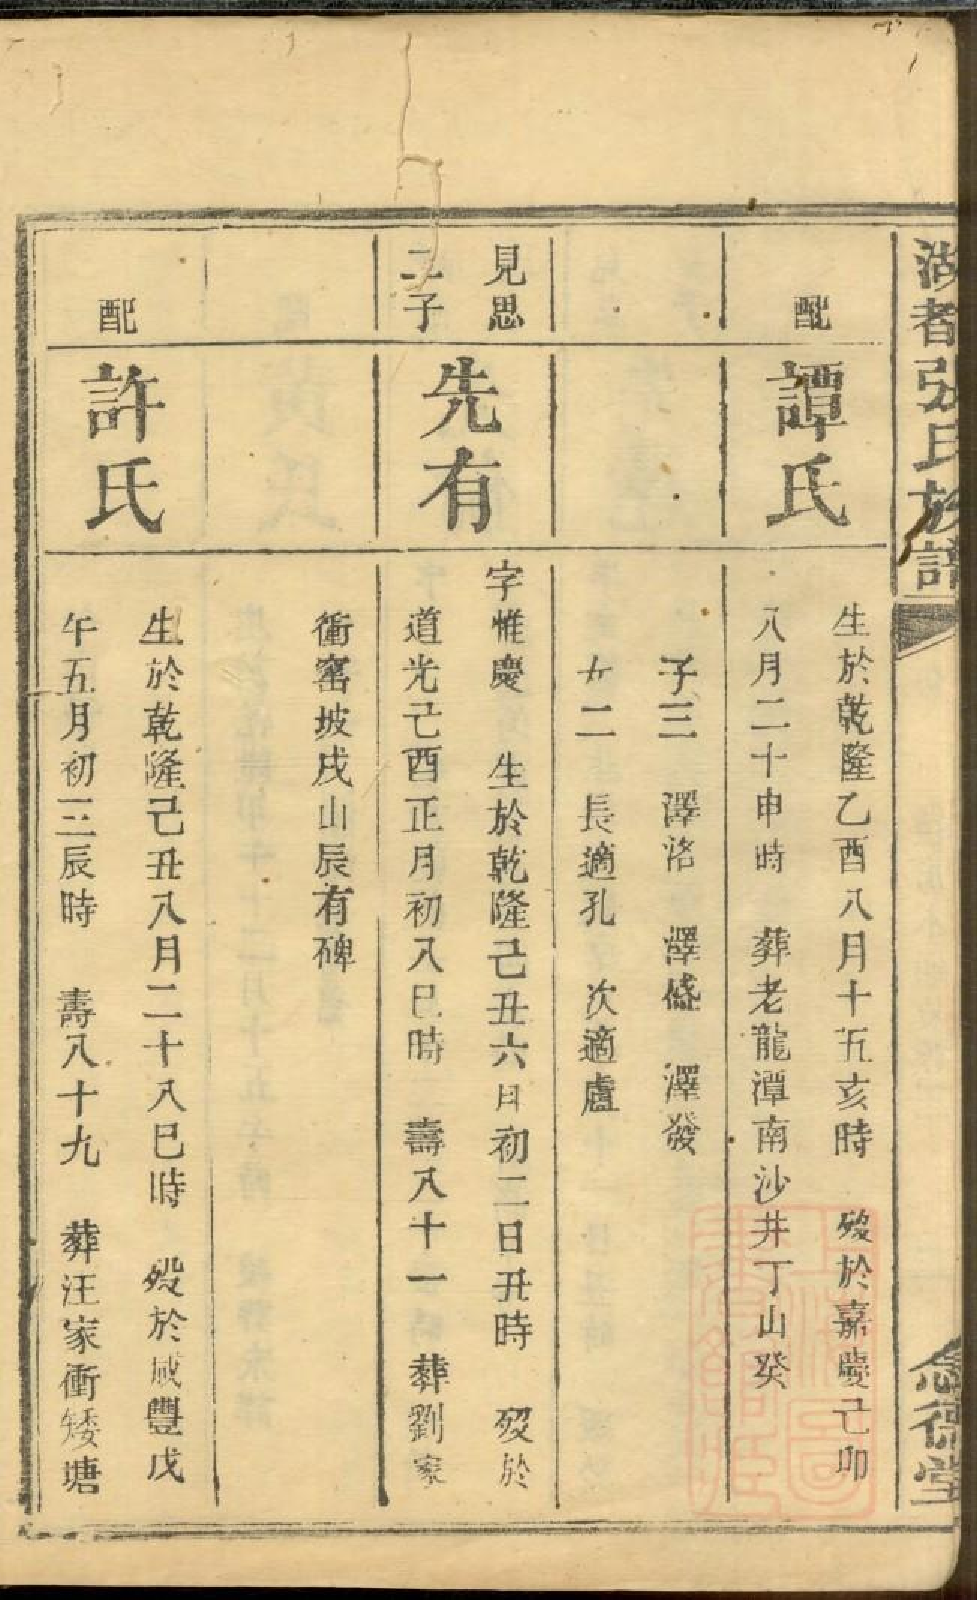 湖者張氏族譜
念德堂
配
譚氏
生於乾隆乙酉八月十五亥時 歿於嘉慶己卯
八月二十申時 葬老龍潭南沙井丁山癸
子三 澤洛 澤 澤發
女二 長適孔 次適盧
見思
二子
先有
字惟慶 生於乾隆己丑六月初二日丑時 歿於
道光己酉正月初八巳時 壽八十一 葬劉家
衝窰坡戌山辰有碑
配
許氏
生於乾隆己丑八月二十八巳時 歿於咸豐戊
午五月初三辰時 壽八十九 葬汪家衝矮塘